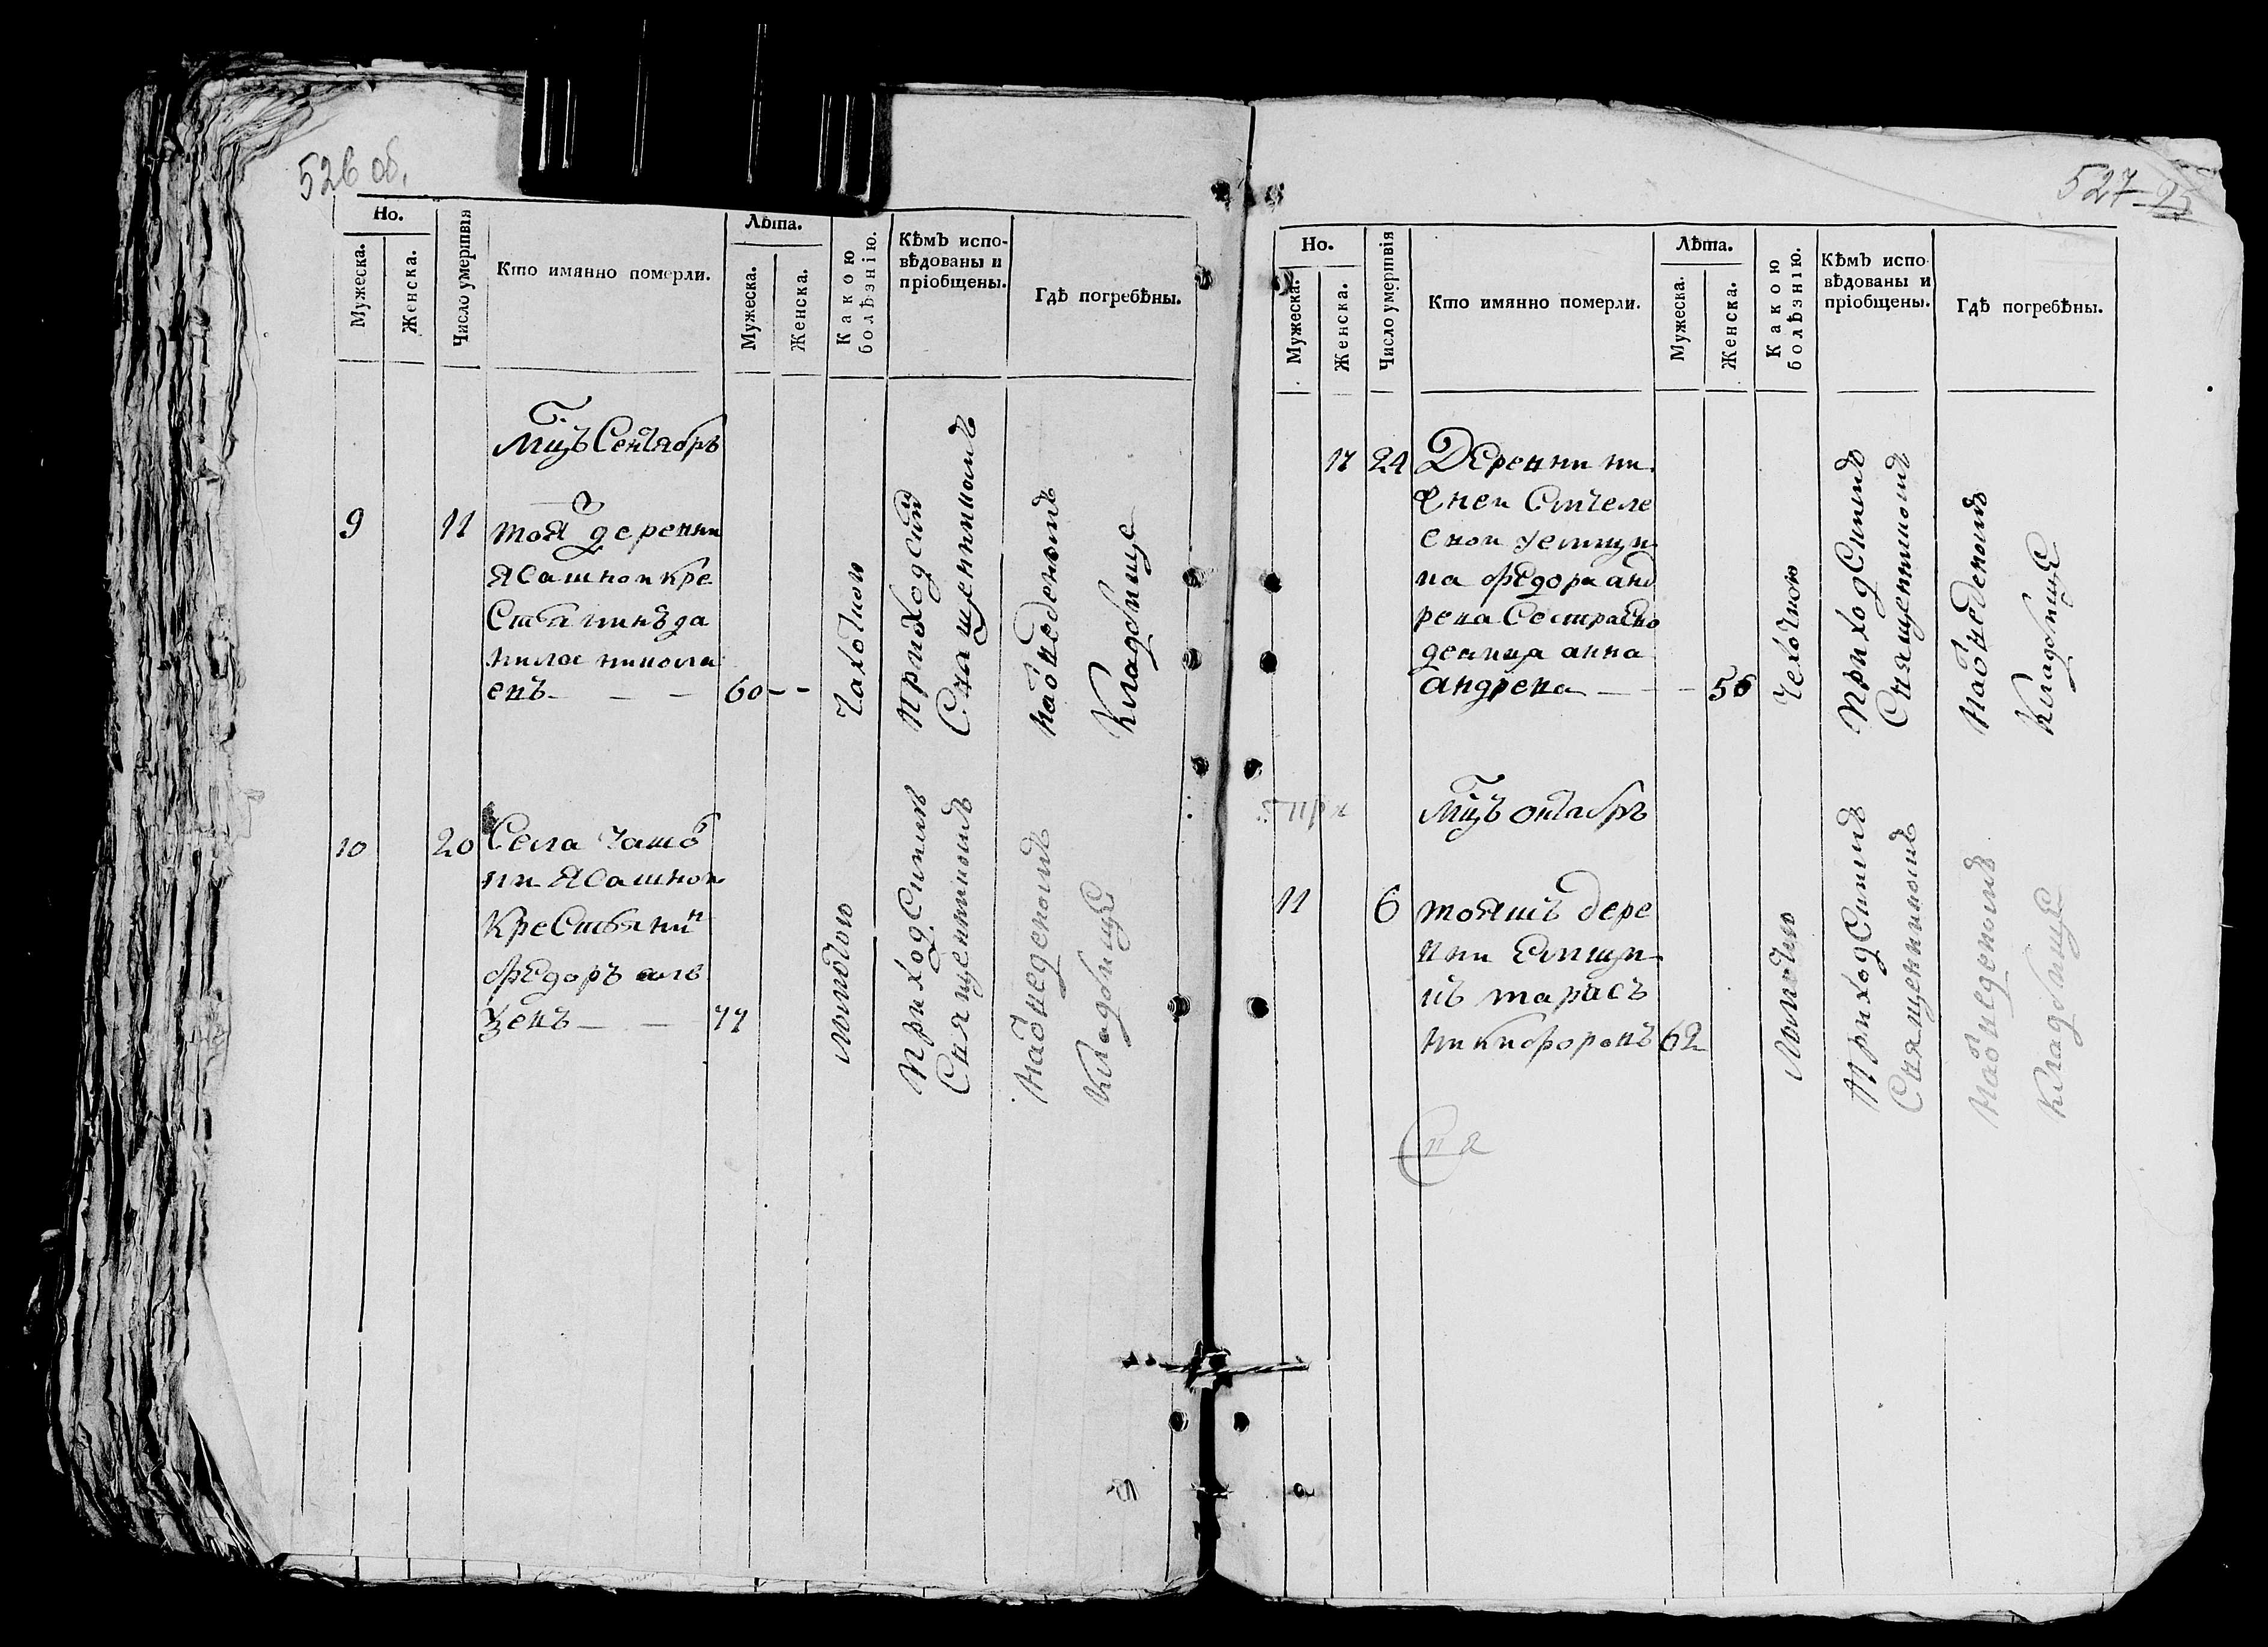 526 об.
Но.
Мужеска.
Женска.
Число умертвія
Кто имянно померли.
Лѣта.
Мужеска.
Женска.
Какою болѣзнію.
Кѣмъ испо-
вѣдованы и
пріобщены.
Гдѣ погребѣны.
Мцъ Сентябрь
9 11 тоя деревни
ясашнои кре
стьянинъ да
нило никола
евъ — — — 60 - -
Чахоткою
Приходским
Священником
На отведеномъ
Кладбище
10 20 Села
ясашной
крестьянин
Федоръ
— — 77
Приходскимъ
Священникомъ
На отведеномъ
Кладбище
527 - 95
Но.
Мужеска.
Женска.
Число умертвія
Кто имянно померли.
Лѣта.
Мужеска.
Женска.
Какою
болѣзнію.
Кѣмъ испо-
вѣдованы и
пріобщены.
Гдѣ погребѣны.
17 24 Деревни ни
жнеи
на Федора анд
реева сестра
девица анна
андреева — - - 56
Чехоткою
Приходскимъ
Священникомъ
На отведеномъ
Кладбище
Мцъ октябрь
11 6 тояжъ дере
вни
тарасъ
никифоровъ 62
Приходскимъ
Священникомъ
На отведеномъ
Кладбище